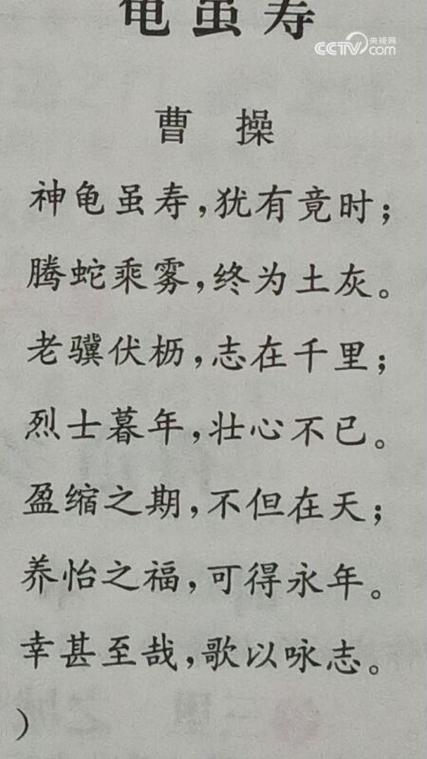 龟虽寿
CCTV.com 央视网
曹 操
神龟虽寿，犹有竟时；
腾蛇乘雾，终为土灰。
老骥伏枥，志在千里；
烈士暮年，壮心不已。
盈缩之期，不但在天；
养怡之福，可得永年。
幸甚至哉，歌以咏志。
）